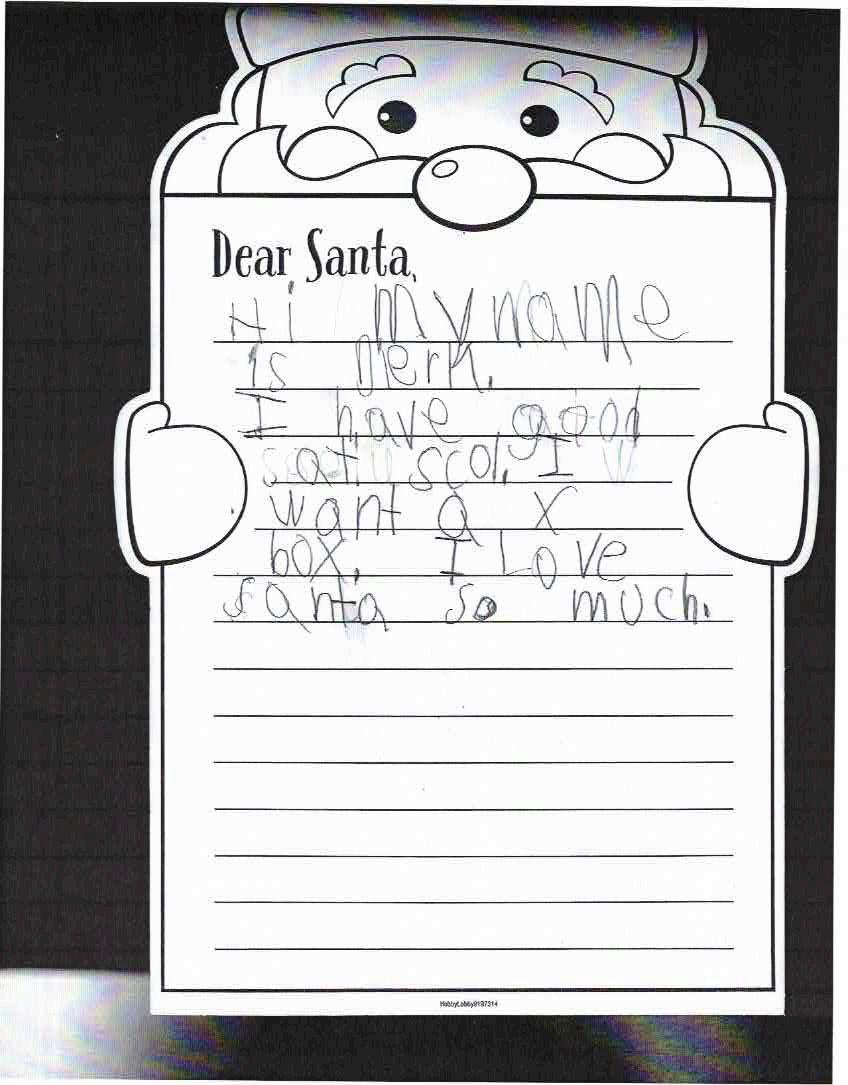 Dear Santa,
Hi my name
is Derk.
I have good
at scol. I
want a x
box. I Love
santa so much.
HobbyLobby9197314